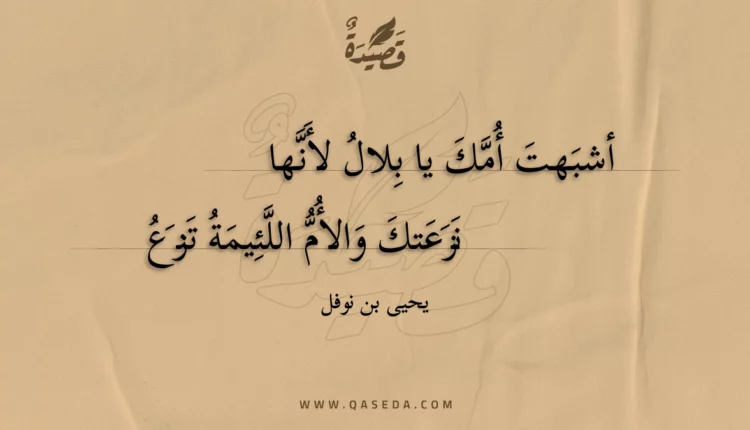 قَصِيدَةٌ
أشبَهتَ أُمَّكَ يا بِلالُ لأَنَّها
نَزَعَتكَ وَالأُمُّ اللَّئِيمَةُ تَنزَعُ
يحيى بن نوفل
WWW.QASEDA.COM